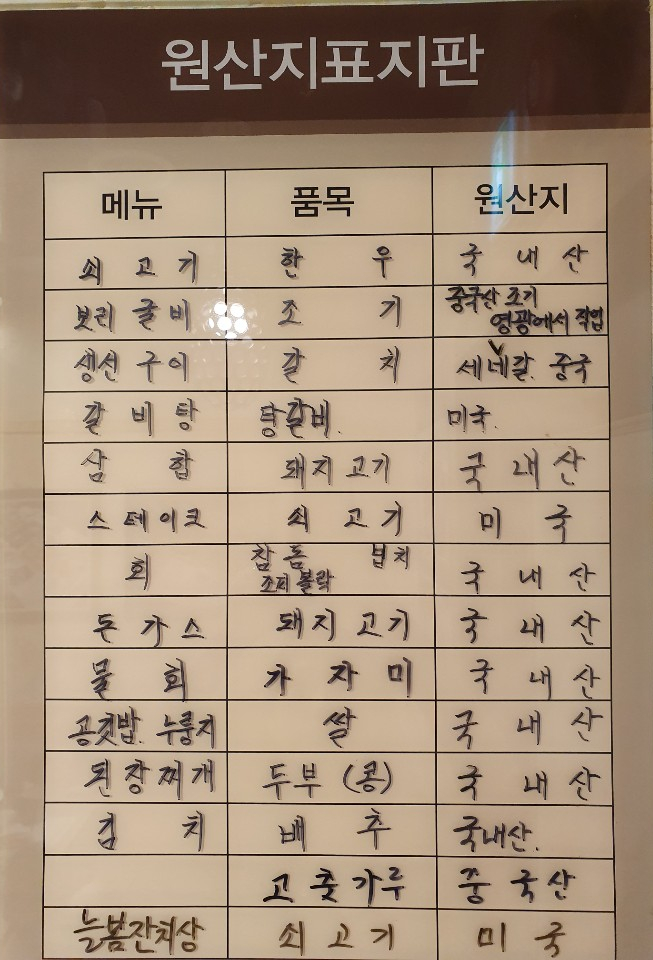 원산지표지판
메뉴 품목 원산지
쇠고기 한우 국내산
보리굴비 조기 중국산 조기
영광에서 작업
생선구이 갈치 세네갈. 중국
갈비탕 탕갈비. 미국.
삼합 돼지고기 국내산
스테이크 쇠고기 미국
회 참돔 넙치
조피볼락 국내산
돈가스 돼지고기 국내산
물회 가자미 국내산
공깃밥. 누룽지 쌀 국내산
된장찌개 두부(콩) 국내산
김치 배추 국내산.
고춧가루 중국산
늘봄잔치상 쇠고기 미국